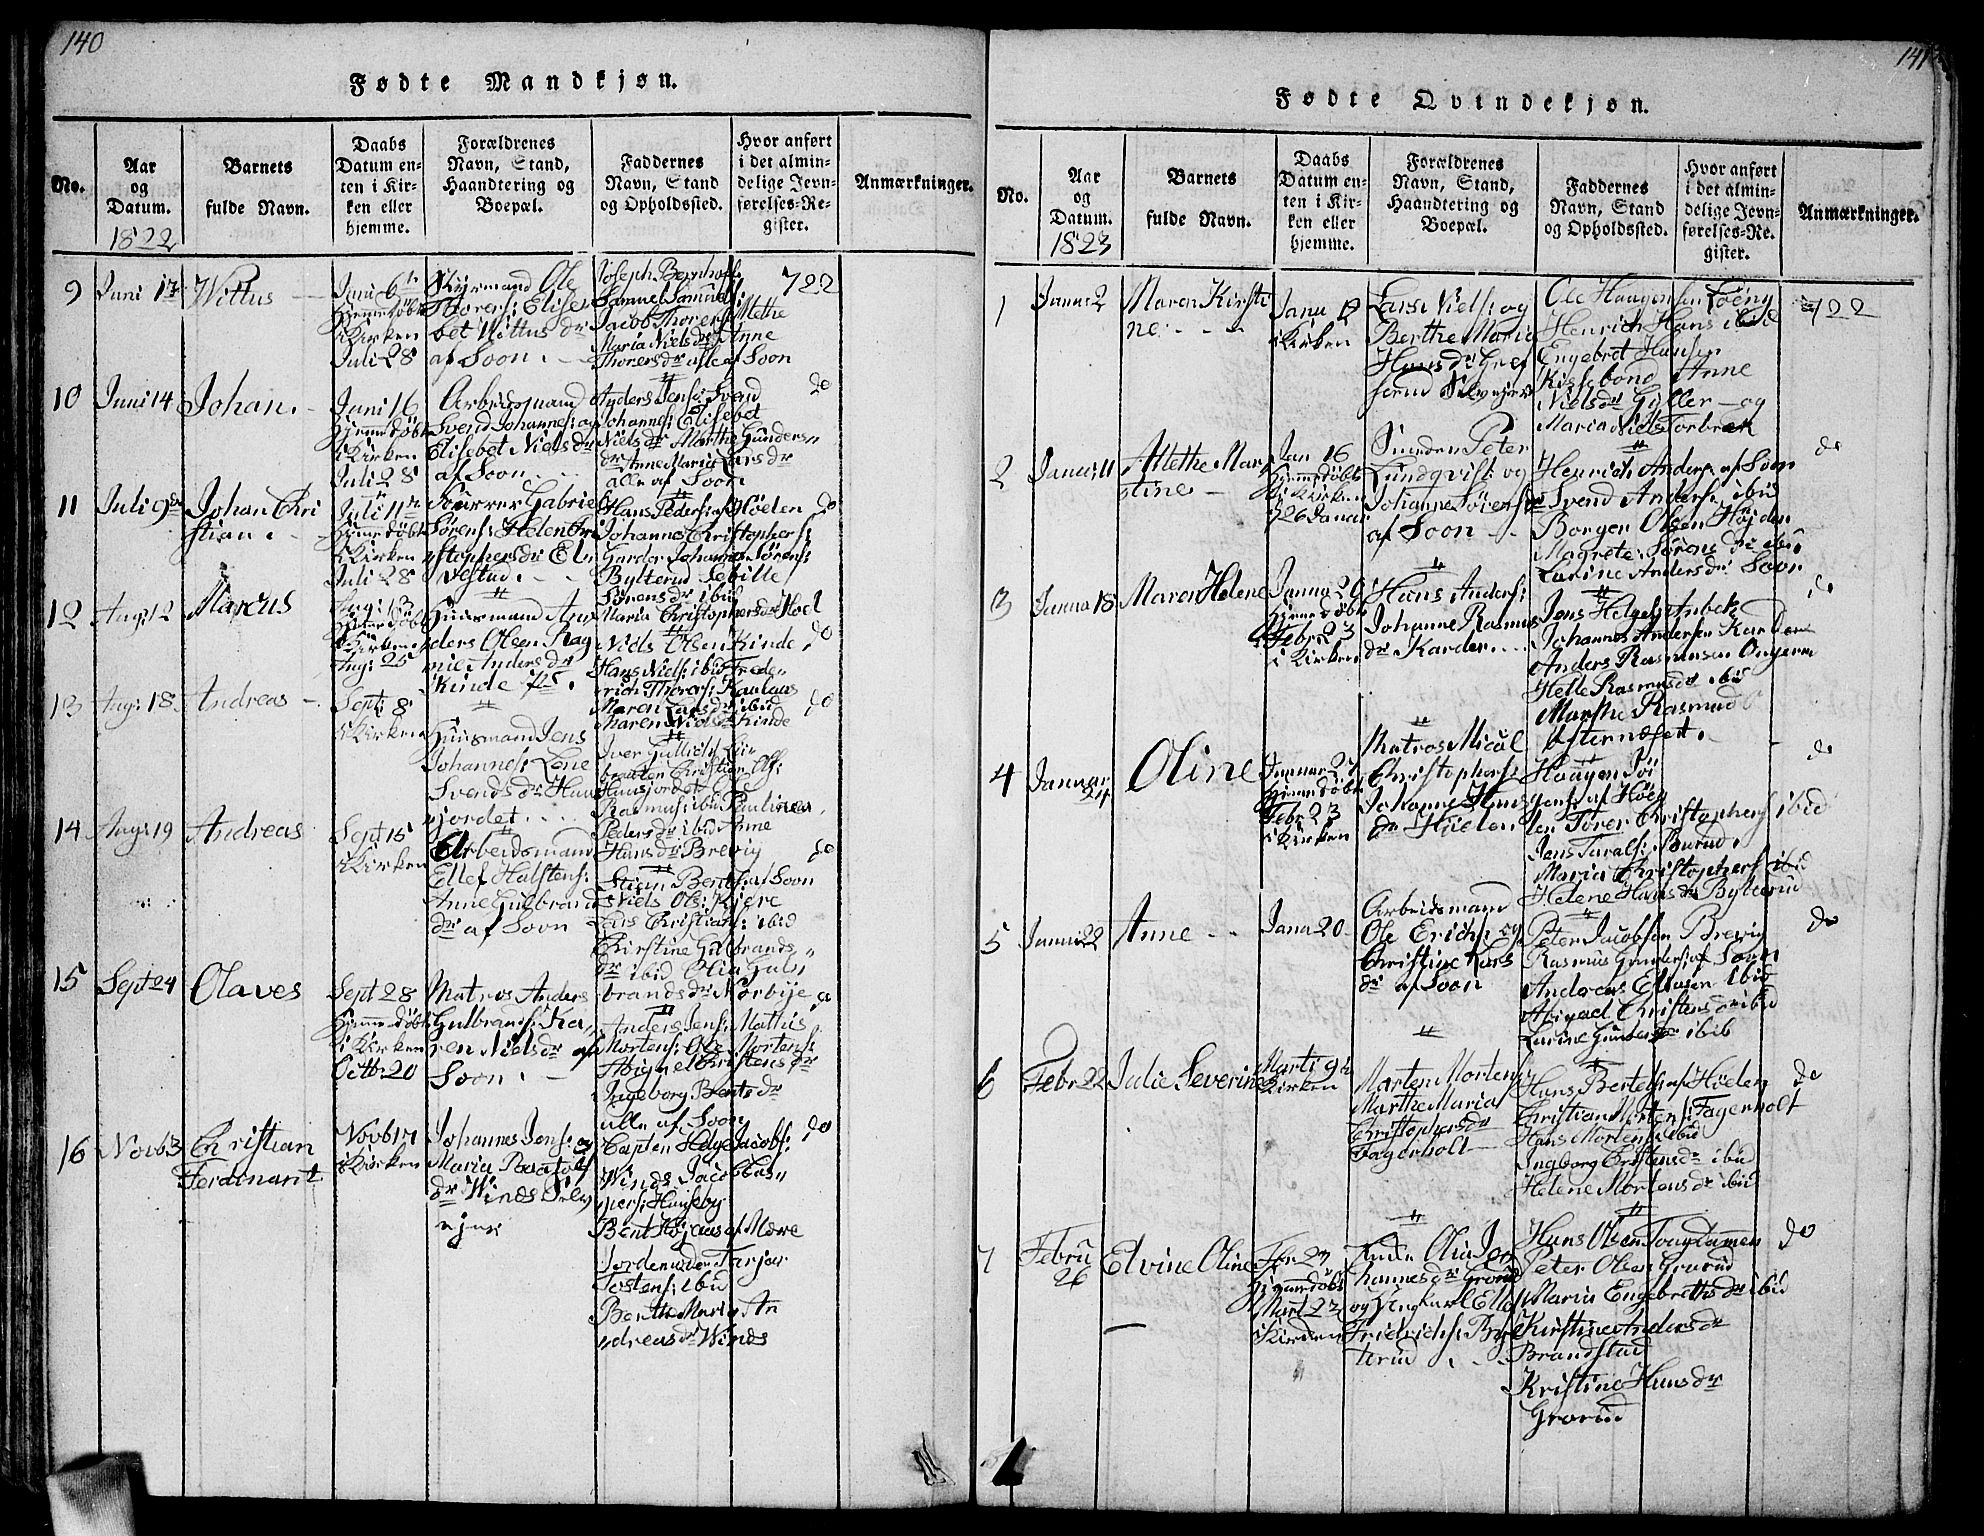 140
Fødte Mandkjøn.
No.
Aar
og
Datum.
1822
Barnets
fulde Navn.
Daabs
Datum en-
ten i Kir-
ken eller
hjemme.
Forældrenes
Navn, Stand,
Haandtering og
Boepæl.
Faddernes
Navn, Stand
og Opholdssted.
Hvor anført
i det almin-
delige Jevn-
førelses-Re-
gister.
Anmærkninger.
9
Juni
Wittus
Juni 6
Hjemmedöbt
i Kirken
Juli 28
Ole
Thorers: Elise
bet Wittus dr
af Soon.
Joseph Bernhof
Samuel Samuels:
Jacob Thorers: Methe
Maria Niels dr Anne
Thorers dr alle af Soon
722
10
Juni 14
Johan.
Juni 16
Hjemmedöbt
i Kirken
Juli 28
Arbeidsmand
Svend Johannes: og
Elisebet Niels dr
af Soon
Anders Jens: Svend
Johannes: Elisebet
Niels dr Marthe Gunders
dr Anne Maria Lars dr
alle af Soon
do
11
Juli 9de
Johan Chri
stian.
Juli 11
Hjemmedöbt
i Kirken
Juli 28
Gabriel
Sörens: Helen Chri
stophers dr El
vestad.
Hans Peders: af Höelen
Johannes Christophers:
Garder Johannes Sörens:
Bylterud Sebille
Sörens dr ibid
Maria Christophers dr Hoel
do
12
Aug: 12
Marcus
Aug: 13
Hjemmedöbt
i Kirken
Aug: 25
Huusmand An
ders Olsen Rag
nie Anders dr
Kinde
Niels Olsen Kinde
Hans Niels: ibid Frede
rich Thorers:
Maren Lars dr ibid
Maren Niels dr Kinde
do
13
Aug: 18
Andreas
Sept: 8
i Kirken
Huusmand Jens
Johannes: Lene
Svends dr Huus
jordet
Iver Gullichs:
braaten Christian Ols:
Huusjordet
Rasmus: ibid Paulinea
Peders dr ibid Anne
Hans dr Brevig
do
14
Aug: 19
Andreas
Sept 15
i Kirken
Arbeidsmand
Ellef Halstens:
Anne Gulbrand
dr af Soon
Stian Bents: af Soon
Niels Ols: Kjere
Lars Christians: ibid
Christine Gulbrands
dr ibid Olia Gul
brands dr Norbye
do
15
Sept 24
Olaves
Sept 28
Hjemmedöbt
i Kirken
Octb: 20
Matros Anders
Gulbrands: Ka
ren Niels dr af
Soon.
Anders Jens: Mathis
Mortens: Ole Mortens:
Abigael Christens dr
Ingeborg Bents dr
alle af Soon
16
Novb 3
Christian
Ferdinant
Novb 17
i Kirken
Johannes Jens: og
Maria
dr Winds
Capten Helge Jacobs:
Winds Jacob Cas
pers: Huuseby
Bent af Mare
Jorden uden Tarjar
Torstens: ibid
Berthe Maria An
dreas dr Winds
do
141
Fødte Qvindekjøn.
No.
Aar
og
Datum.
1823
Barnets
fulde Navn.
Daabs
Datum en-
ten i Kir-
ken eller
hjemme.
Forældrenes
Navn, Stand,
Haandtering og
Boepæl.
Faddernes
Navn, Stand
og Opholdssted.
Hvor anført
i det almin-
delige Jevn-
førelses-Re-
gister.
Anmærkninger.
1
Janua 2
Maren Kirsti
ne
Janu 12
i Kirken
Lars Niels: og
Berthe Maria
Hans dr
Ole Haagensen Löeng
Henrich Hans: ibid
Engebret Hansen
Kissebond Anne
Niels dr Gyller og
Maria Niels Torbrek
722
2
Janua 11
Allethe Mar
tine
Jan 16
Hjemmedöbt
i Kirken
26 Janua
Peter
Lundqvist: og
Johanne Sörens dr
af Soon
Henrich Anders: af Soon
Svend Anders: ibid
Borger Olsen Höjden
Magrete Sörens dr ibid
Larine Anders dr Soon
do
3
Janua 18
Maren Helene
Janua 20
Hjemmedöbt
Febr 23
i Kirken
Hans Anders:
Johanne Rasmus
dr Karder
Jens Helges: Anbek
Johannes Andersen Karder
Anders Rasmusen
Helle Rasmus dr ibid
Marthe Rasmusd
Osternæset.
do
4
Januar 24
Oline
Januar 27
Hjemmedöbt
Febr 23
i Kirken
Matros Micül
Christophers:
Johanne Hans
dr Höelen
Haagen Jör
gens: af Höe
len Torer Christophers ibid
Jens Taralss: Burud.
Maria Christophers ibid
Helene Hans dr Bylterud
do
5
Janu 22
Anne
Janu 20
Arbeidsmand
Ole Erichs: og
Christine Lars
dr af Soon
Peter Jacobsen Brevig
Rasmus Gunders: af Soon
Andreas Ellefsen ibid
Abigael Christens dr ibid
Larine Gunders dr ibid
do
6
Febr 22
Julie Severine
Marti 9
i Kirken
Marten Mortens:
Marthe Maria
Christophers dr
Fagerholt
Hans Bertels: af Höelen
Christian Mortens: Fagerholt
Hans Mortens: ibid
Ingborg Christens dr ibid
Helene Mortens dr ibid
do
7
Febru
26
Elvine Oline
Febr 27
Hjemmedöbt
Mart 23
i Kirken
Olia Jo
hannes dr Grorud
og Ungkarl Ellef
Fridrichs: Byl
terud
Hans Olsen Tangdammen
Peter Olsen Grorud
Maria Engebreths dr ibid
Kirstine Anders dr
Brandstad
Kristine Hans dr
Grorud
do